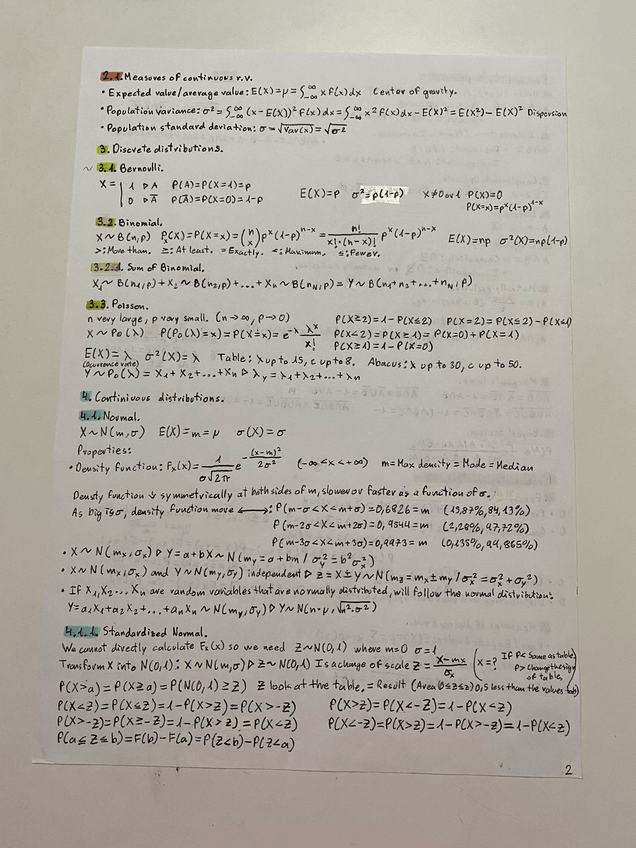 2.1. Measures of continuous r.v.
• Expected value/average value: E(X)=μ=∫_{-∞}^{∞} x f(x)dx Center of gravity.
• Population variance: σ²=∫_{-∞}^{∞} (x-E(X))² f(x)dx=∫_{-∞}^{∞} x² f(x)dx-E(X)²=E(X²)-E(X)² Dispersion
• Population standard deviation: σ=√Var(X)=√σ²
3. Discrete distributions.
~ 3.1. Bernoulli.
X= | 1 ▷ A P(A)=P(X=1)=p
0 ▷ A̅ P(A̅)=P(X=0)=1-p
E(X)=p σ²=p(1-p) X≠0 or 1 P(X)=0
P(X=x)=pˣ(1-p)^{1-x}
3.2. Binomial.
X~B(n,p) Pₓ(X)=P(X=x)=(n x)pˣ(1-p)^{n-x}=n!/(x!·(n-x)!) pˣ(1-p)^{n-x} E(X)=np σ²(X)=np(1-p)
>: More than. ≥: At least. = Exactly. <: Maximum, ≤: Fewer.
3.2.1. Sum of Binomial.
X₁~B(n₁,p)+X₂~B(n₂,p)+...+Xₙ~B(n_N,p)=Y~B(n₁+n₂+...+n_N,p)
3.3. Poisson.
n very large, p very small. (n→∞, p→0) P(X≥2)=1-P(X≤2) P(X=2)=P(X≤2)-P(X≤1)
X~P₀(λ) P(P₀(λ)=x)=P(X=x)=e^{-λ} λˣ/x! P(X<2)=P(X≥1)=P(X=0)+P(X=1)
P(X≥1)=1-P(X=0)
E(X)=λ σ²(X)=λ Table: λ up to 15, c up to 8. Abacus: λ up to 30, c up to 50.
(Ocurrence rate)
Y~P₀(λ)=X₁+X₂+...+Xₙ ▷ λ_y=λ₁+λ₂+...+λₙ
4. Continuous distributions.
4.1. Normal.
X~N(m,σ) E(X)=m=μ σ(X)=σ
Properties:
• Density function: Fₓ(x)=1/(σ√2π) e^{-(x-m)²/2σ²} (-∞<x<+∞) m=Max density=Mode=Median
Density function ↓ symmetrically at both sides of m, slower or faster as a function of σ.
As big is σ, density function move ⟷: P(m-σ<X<m+σ)=0,6826=m (15,87%, 84,13%)
P(m-2σ<X<m+2σ)=0,9544=m (2,28%, 97,72%)
P(m-3σ<X<m+3σ)=0,9973=m (0,135%, 99,865%)
• X~N(mₓ,σₓ) ▷ Y=a+bX~N(m_y=a+bm / σ_y²=b²σₓ²)
• X~N(mₓ,σₓ) and Y~N(m_y,σ_y) independent ▷ Z=X±Y~N(m_z=mₓ±m_y/σ²=σₓ²+σ_y²)
• If X₁,X₂...Xₙ are random variables that are normally distributed, will follow the normal distribution:
Y=a₁X₁+a₂X₂+...+aₙXₙ~N(m_y,σ_y) ▷ Y~N(n·μ,√n²·σ²)
4.1.1. Standardized Normal.
We cannot directly calculate Fₓ(x) so we need Z~N(0,1) where m=0 σ=1
Transform X into N(0,1): X~N(m,σ) ▷ Z~N(0,1) Is a change of scale Z=(X-mₓ)/σₓ (x=? If P< Same as table, P> Change the sign of table)
P(X>a)=P(X≥a)=P(N(0,1)≥Z) Z look at the table,=Result (Area(0≤z≤z) 0,5 less than the values tab)
P(X<Z)=P(X≤Z)=1-P(X>Z)=P(X>-Z) P(X>Z)=P(X<-Z)=1-P(X<Z)
P(X>-Z)=P(X≥-Z)=1-P(X>Z)=P(X<Z) P(X<-Z)=P(X>Z)=1-P(X>-Z)=1-P(X<Z)
P(a≤Z≤b)=F(b)-F(a)=P(Z<b)-P(Z<a)
2